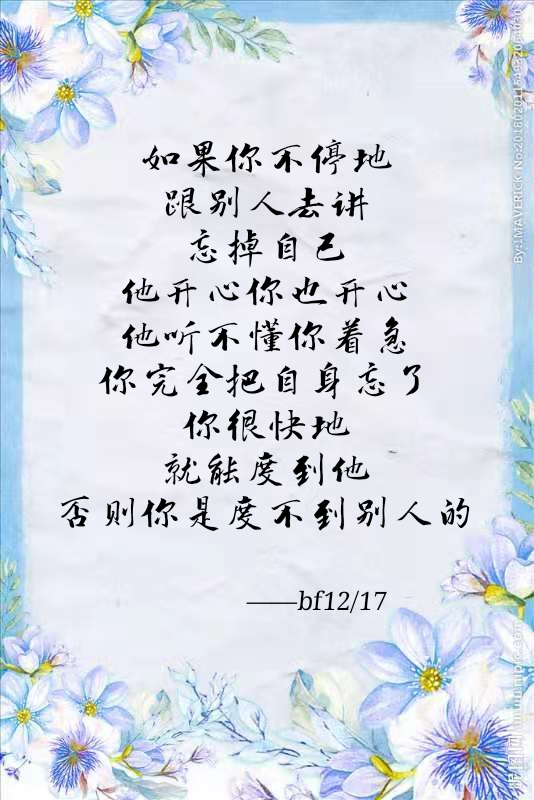 如果你不停地
跟别人去讲
忘掉自己
他开心你也开心
他听不懂你着急
你完全把自身忘了
你很快地
就能度到他
否则你是度不到别人的
——bf12/17